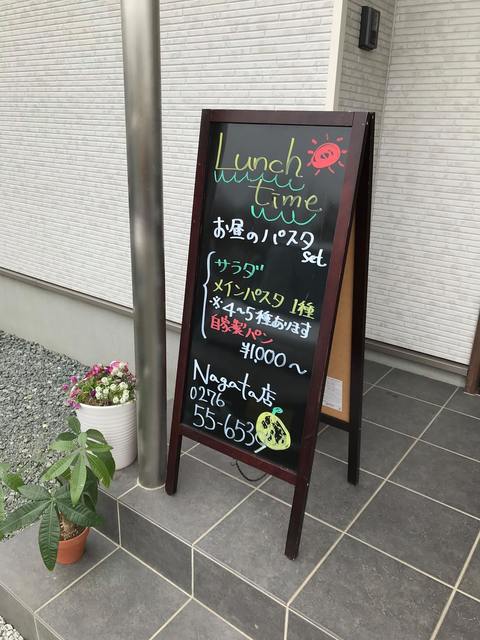 Lunch
time
お昼のパスタ
set
サラダ
メインパスタ 1種
※4〜5種あります
自家製パン
¥1,000〜
Nagata店
0276
55-6539